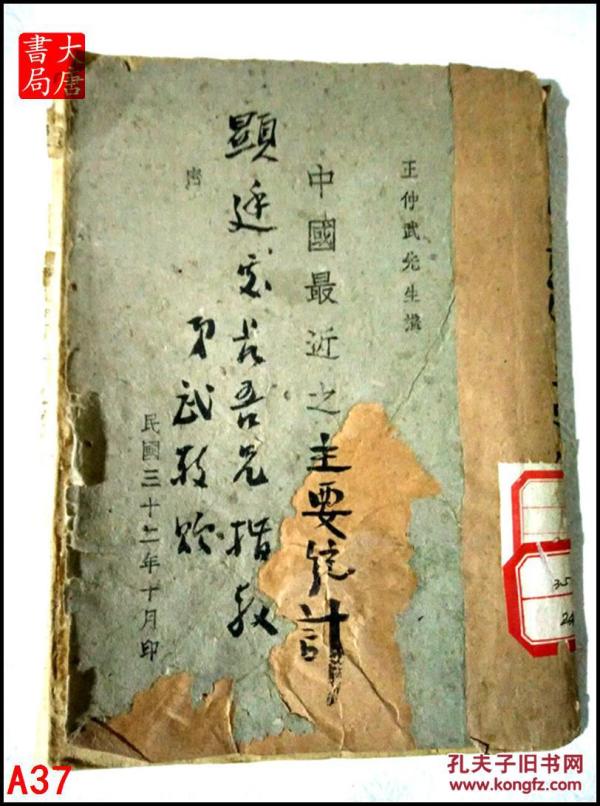 大唐書局
王仲武先生講
中國最近之主要統計
顯廷宏長吾兄指教
弟武敬贈
民國三十二年十月印
35
24
A37
孔夫子旧书网
www.kongfz.com